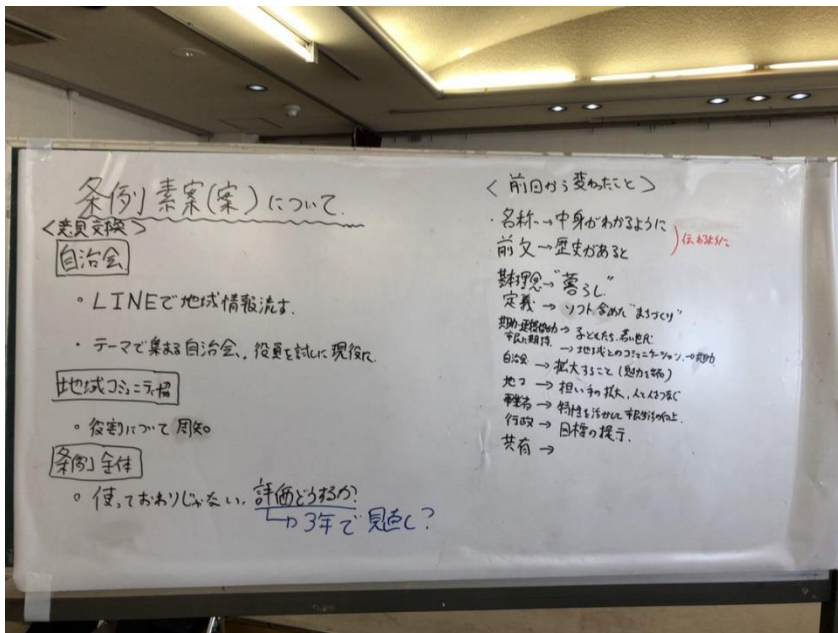 条例素案(案)について.
<意見交換>
自治会
・LINEで地域情報流す.
・テーマで集まる自治会、役員を試しに現役に
地域コミュニティ協
・役割について周知
条例全体
・使っておわりじゃない. 評価どうするか?
→3年で見直し?
<前回から変わったこと>
・名称→中身がわかるように
前文→歴史があると
伝わるように
基本理念→"暮らし"
定義→ソフト含めた"まちづくり"
→子どもたち、若い世代
市民に期待→地域とのコミュニケーション、→共助
自治会→拡大すること(魅力を)
地コ→担い手の拡大、人と人をつなぐ
事業者→特性を活かして市民生活の向上
行政→目標の提示.
共有→